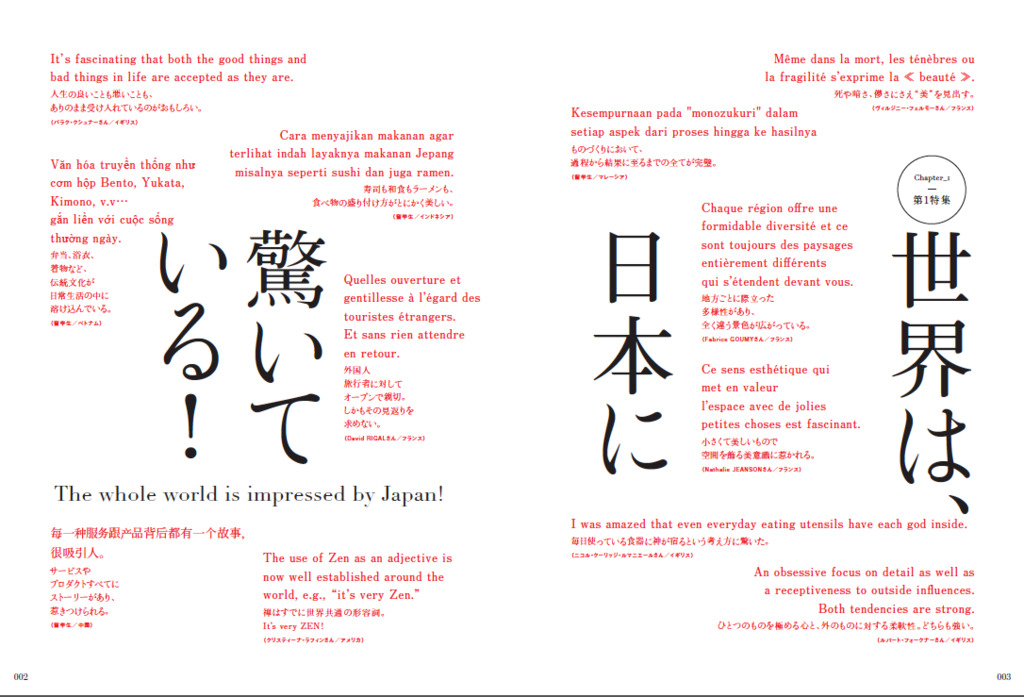 Chapter_1
第1特集
世界は、
日本に
驚いて
いる!
The whole world is impressed by Japan!
Même dans la mort, les ténèbres ou
la fragilité s'exprime la ≪ beauté ≫.
死や暗さ、儚さにさえ“美”を見出す。
(ヴィルジニー・フェルモーさん/フランス)
Kesempurnaan pada "monozukuri" dalam
setiap aspek dari proses hingga ke hasilnya
ものづくりにおいて、
過程から結果に至るまでの全てが完璧。
(留学生/マレーシア)
Chaque région offre une
formidable diversité et ce
sont toujours des paysages
entièrement différents
qui s'étendent devant vous.
地方ごとに際立った
多様性があり、
全く違う景色が広がっている。
(Fabrice GOUMYさん/フランス)
Ce sens esthétique qui
met en valeur
l'espace avec de jolies
petites choses est fascinant.
小さくて美しいもので
空間を飾る美意識に惹かれる。
(Nathalie JEANSONさん/フランス)
I was amazed that even everyday eating utensils have each god inside.
毎日使っている食器に神が宿るという考え方に驚いた。
(ニコル・クーリッジ・ルマニエールさん/イギリス)
An obsessive focus on detail as well as
a receptiveness to outside influences.
Both tendencies are strong.
ひとつのものを極める心と、外のものに対する柔軟性。どちらも強い。
(ルパート・フォークナーさん/イギリス)
It's fascinating that both the good things and
bad things in life are accepted as they are.
人生の良いことも悪いことも、
ありのまま受け入れているのがおもしろい。
(バラク・クシュナーさん/イギリス)
Cara menyajikan makanan agar
terlihat indah layaknya makanan Jepang
misalnya seperti sushi dan juga ramen.
寿司も和食もラーメンも、
食べ物の盛り付け方がとにかく美しい。
(留学生/インドネシア)
Văn hóa truyền thống như
cơm hộp Bento, Yukata,
Kimono, v.v…
gắn liền với cuộc sống
thường ngày.
弁当、浴衣、
着物など、
伝統文化が
日常生活の中に
溶け込んでいる。
(留学生/ベトナム)
Quelles ouverture et
gentillesse à l'égard des
touristes étrangers.
Et sans rien attendre
en retour.
外国人
旅行者に対して
オープンで親切。
しかもその見返りを
求めない。
(David RIGALさん/フランス)
每一种服务跟产品背后都有一个故事,
很吸引人。
サービスや
プロダクトすべてに
ストーリーがあり、
惹きつけられる。
(留学生/中国)
The use of Zen as an adjective is
now well established around the
world, e.g., “it's very Zen.”
禅はすでに世界共通の形容詞。
It's very ZEN!
(クリスティーナ・ラフィンさん/アメリカ)
002
003